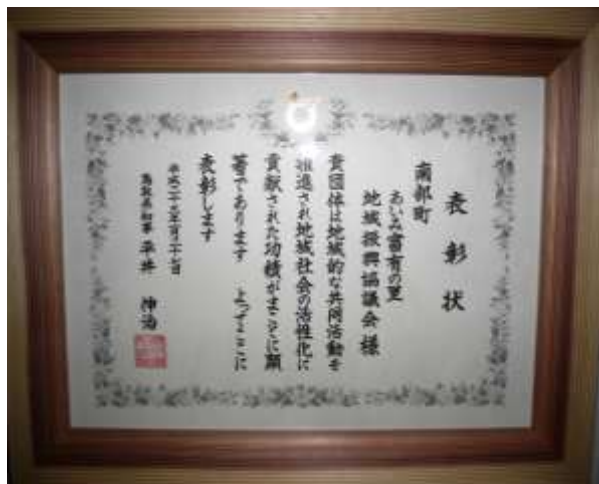 表彰状
南部町
あいみ富有の里
地域振興協議会様
貴団体は地域的な共同活動を
推進され地域社会の活性化に
貢献された功績がまことに顕
著であります　よってここに
表彰します
鳥取県知事　平井　伸治